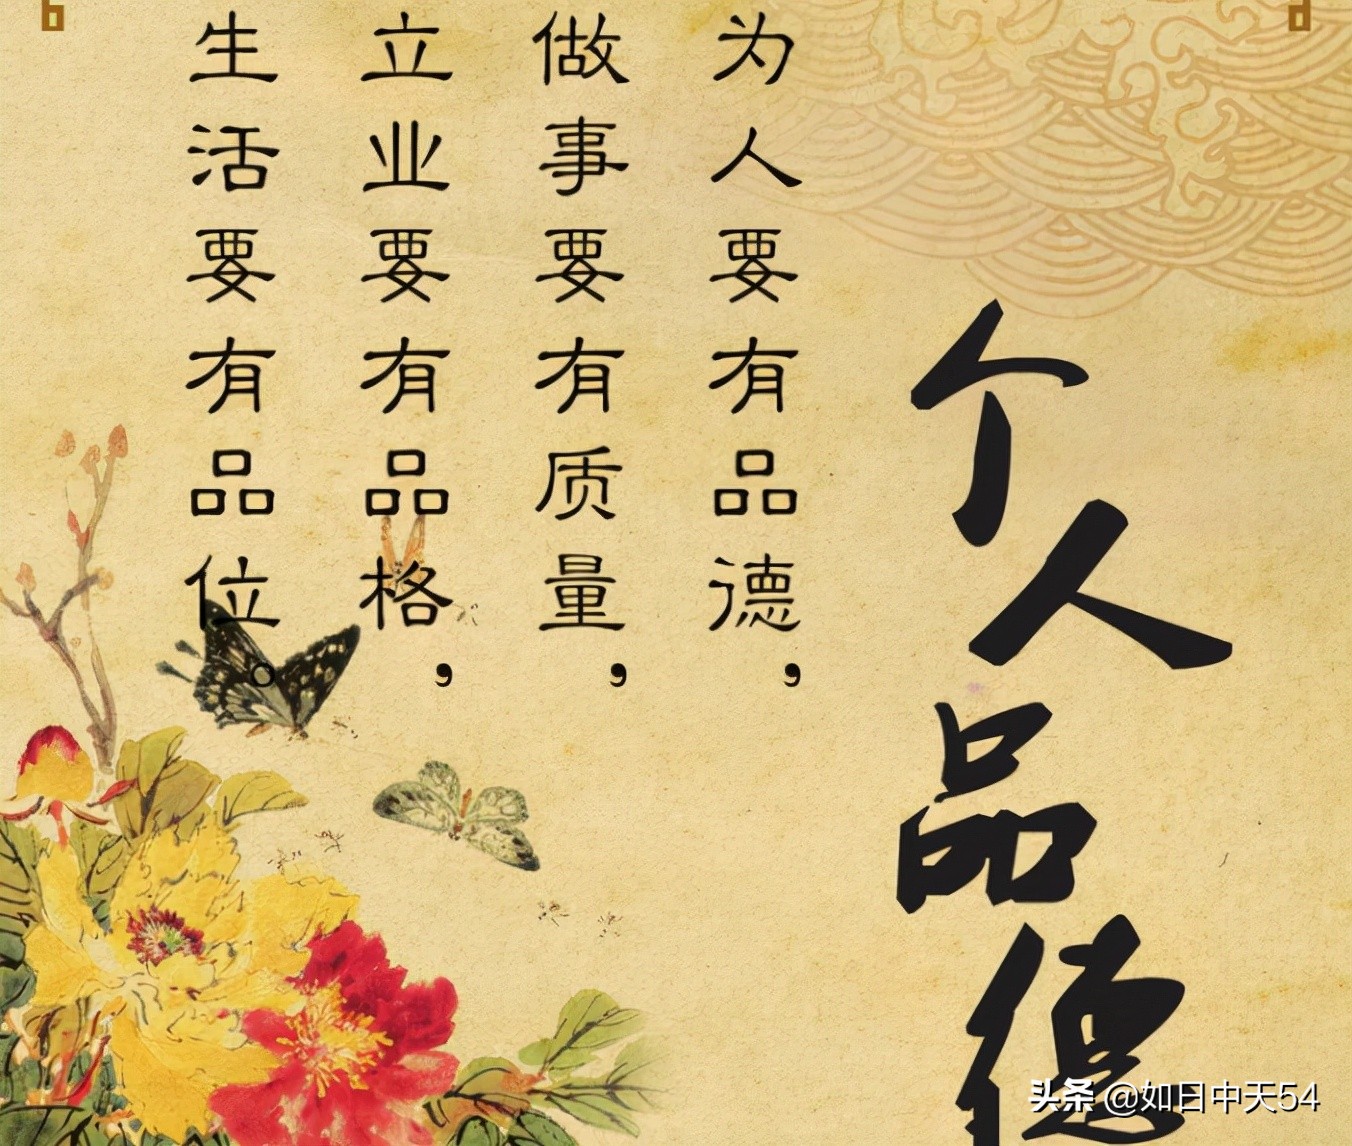 个人品德
为人要有品德，
做事要有质量，
立业要有品格，
生活要有品位。
头条 @如日中天54